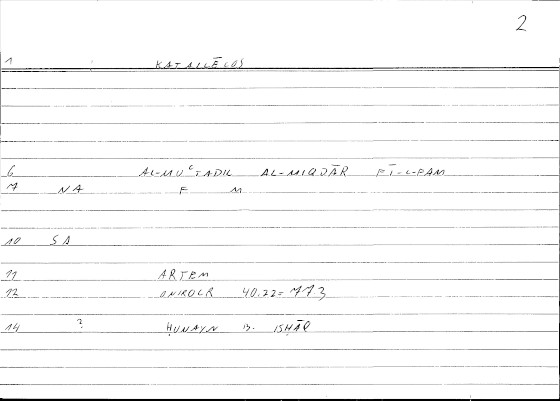 2
1 KATALLĒLOS
6 AL-MUʿTADIL AL-MIQDĀR FĪ-L-FAM
7 NA F M
10 SA
11 ARTEM
12 ONIROCR 40.22 = 773
14 ? ḤUNAYN B. ISḤĀQ